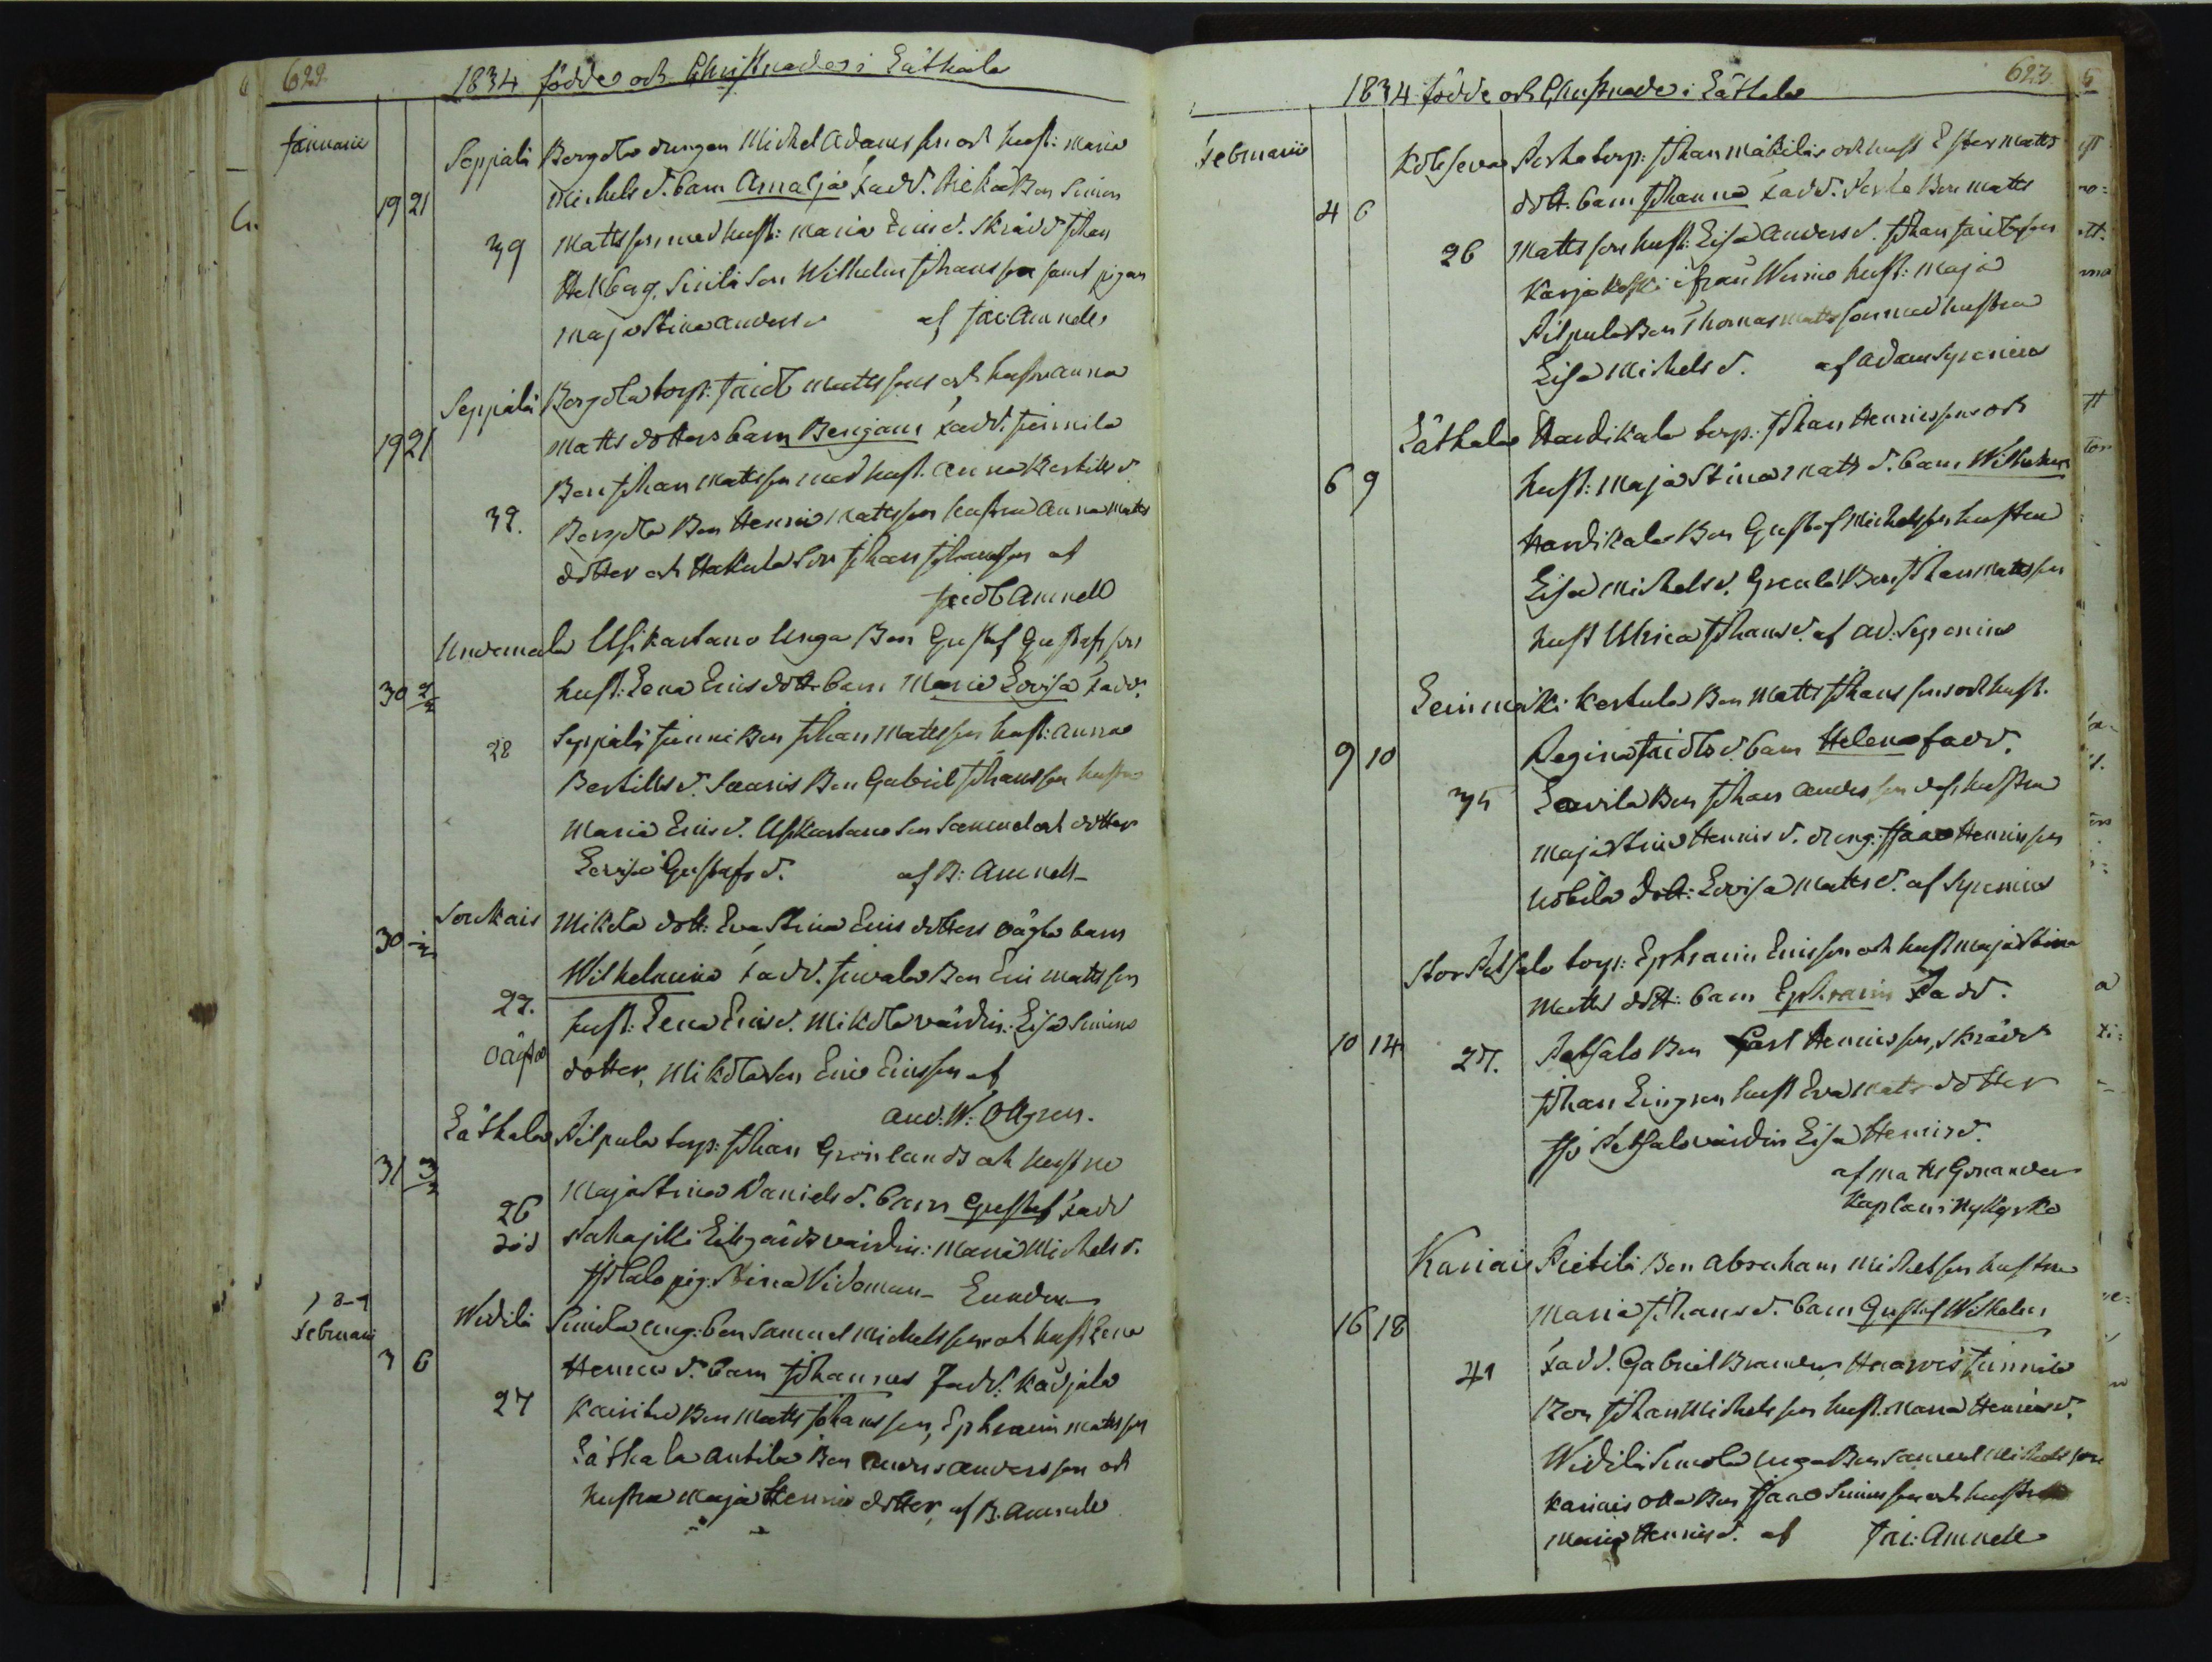 622
1834 födde och Christnade i Låthala
Januarii
Seppälä Borgola drengen Michel Adamsson och hust: Maria
19 21 Michels d. barn Amalja Fadd. Bon Simon
39 Mattsson med hust: Maria Erics d. Skrädd Johan
Hellberg, Son Wilhelm Johansson samt pigan
Maja Stina Anders d af Jac: Amnell
Seppälä Borgola torp: Jacob Mattsson och hustru Anna
19 21 Matts dotters barn Benjam Fadd. Junnila
Bon Johan Mattsson med hust. Anna Bertills d
39. Borgola Bon Henric Mattsson hustru Anna Matts
dotter och Hakula Son Johan Johansson af
Jacob Amnell
Undamala Uskartano Unga Bon Gustaf Gustafsson
30 2/2 hust: Lena Erics dott barn Maria Lovisa Fadd.
28 Seppälä Junni Bon Johan Mattsson hust: Anna
Bertills d. Saaris Bon Gabriel Johansson hustru
Maria Erics d. Uskartano Son Samuel och dotter
Lovisa Gustafs d. af B: Amnell
Soukais Mikola dott: Eva Stina Erics dotters oägta barn
30 2/2 Wilhelmina Fadd. Juvala Bon Eric Mattsson
27. hust: Lena Erics d. Mikola värdin: Lisa Simons
oägta dotter, Mikola Son Eric Ericsson af
And: W: Ollgren.
Låthala Pilpula torp: Johan Grönlunds och hustru
31 3/2 Maja Stina Daniels d. barn Gustaf Fadd
26 Nahajilki Eilgårds värdin: Maria Michels d.
död pig. Stina Vidoman Lunden
1834
Februarii Widilä Simola ung: bon Samuel Michelsson och hust Lena
3 6 Henrics d. barn Johannes Fadd. Kåvjala
27 Bon Matts Johansson, Ephraim Mattsson
Låthala Antila Bon Anders Andersson och
hustru Maja Henrics dotter, af B. Amnell
623
1834 födde och Christnade i Låthala
Februarii
Kolseva torp: Johan Mäkiläs och hust Ester Matts
4 6 dott. barn Johanna Fadd. Bon Matts
26 Mattsson hust: Lisa Anders d. Johan Jacobsson
Karjakoski ifrån Wirmo hust: Maja
Pilpula Bon Thomas Mattsson med hustru
Lisa Michels d. af Adam Syrenius
Låthala Handikala torp: Johan Henricsson och
6 9 hust: Maja Stina Matts d. barn Wilhelm
Handikala Bon Gustaf Michelsson hustru
Lisa Michels d. Bon Johan Mattsson
hust Ulrica Johans d. af Ad: Syrenius
Leinmäki Kertula Bon Matts Johansson och hust.
9 10 Regina Jacobs d. barn Helena fadd.
35 Bon Johan Andersson dess hustru
Maja Stina Henrics d. dreng: Isaac Henricsson
dott: Lovisa Matts d. af Syrenius
Stor Petsalo torp: Ephraim Ericsson och hust Maja Stina
Matts dott: barn Ephraim Fadd.
10 14 27. Petsalo Bon Carl Henricsson, Skrädd
Johan Lingren hust Eva Matts dotter
Iso Petsalo värdin Lisa Henrics d.
af Matts Gonander
Kaplan i Nykyrko
Kariais Pietilä Bon Abraham Michelsson hustru
16 18 Maria Johans d. barn Gustaf Wilhelm
41 Fadd. Gabriel Brander, Haarois Junnila
Bon Johan Michelsson hust. Maria Henrics d.
Widilä Simola unga Bon Samuel Michelsson
Kariais Olla Bon Isaac Simonsson och hustru
Maria Henrics d. af Jac: Amnell